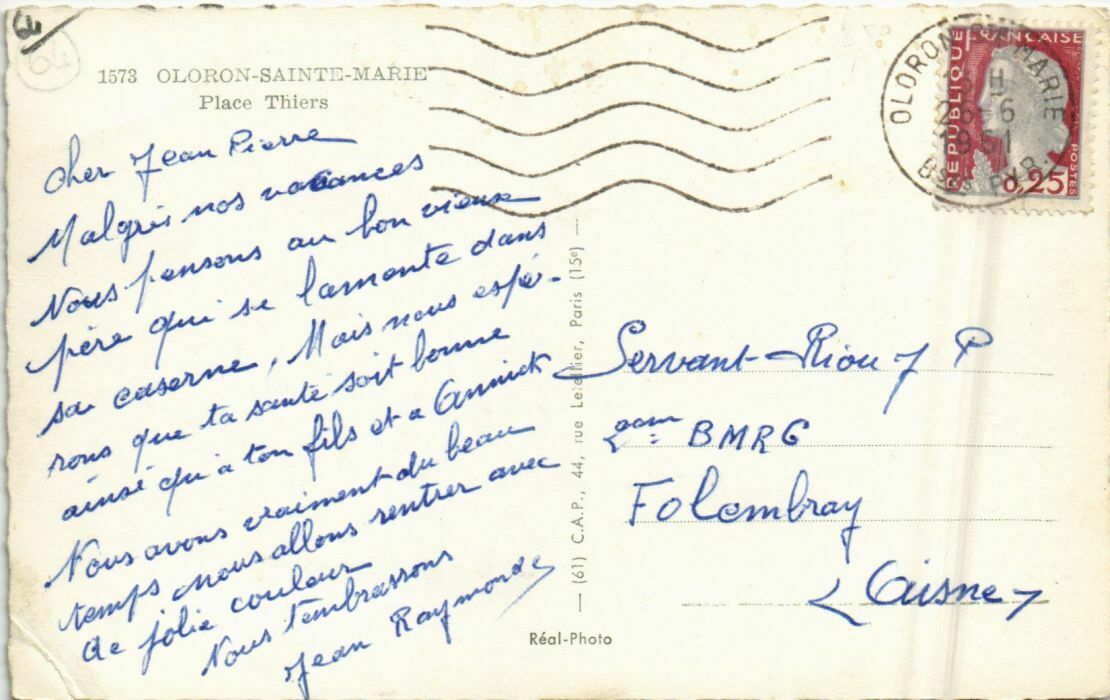 3/
64
1573 OLORON-SAINTE-MARIE
Place Thiers
OLORON STE MARIE
H
26-6
1961
BSES PYR.
REPUBLIQUE FRANÇAISE
POSTES
0,25
Cher Jean Pierre
Malgrés nos vacances
Nous pensons au bon vieux
père qui se lamente dans
sa caserne, Mais nous espé-
rons que ta santé soit bonne
ainsi qu'à ton fils et a Annick
Nous avons vraiment du beau
temps nous allons rentrer avec
de jolie couleur
Nous t'embrassons
Jean Raymonde
(61) C.A.P., 44, rue Letellier, Paris (15e)
Réal-Photo
Servant Riou J P
BMRG
Folembray
(Aisne)